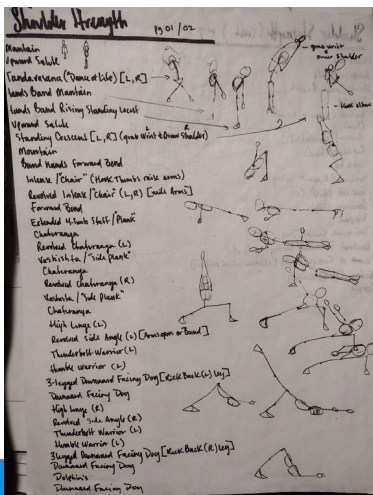 Shoulder Strength pg 01/02
Mountain
Upward Salute
Tandavasana ("Dance of life") [L,R]
Hands Bound Mountain
Hands Bound Rising Standing Locust
Upward Salute
Standing Crescent [L,R] (grab wrist & Draw Shoulder)
L R
grab wrist
& Draw Shoulder
Hook elbow
Mountain
Bound Hands Forward Bend
Intense/"Chair" (Hook Thumbs raise arms)
Revolved Intense/"Chair" (L,R) [wide Arms]
Forward Bend
Extended 4-limb Staff/"Plank"
Chaturanga
Revolved Chaturanga (L)
Vashista/"side plank"
Chaturanga
Revolved Chaturanga (R)
Vashista/"Side Plank"
Chaturanga
High Lunge (L)
Revolved Side Angle (L) [Arms open or Band]
Thunderbolt Warrior (L)
Humble Warrior (L)
3-legged Downward Facing Dog [Kick Back (L) leg]
Downward Facing Dog
High Lunge (R)
Revolved Side Angle (R)
Thunderbolt Warrior (L)
Humble Warrior (L)
3 legged Downward Facing Dog [Kick Back (R) leg]
Downward Facing Dog
Dolphins
Downward Facing Dog